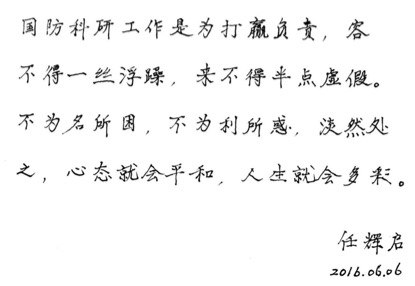 国防科研工作是为打赢负责，容
不得一丝浮躁，来不得半点虚假。
不为名所困，不为利所惑，淡然处
之，心态就会平和，人生就会多彩。
任辉启
2016.06.06